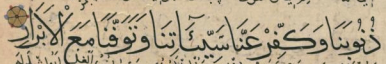 ذُنُوبَنَا وَكَفِّرْ عَنَّا سَيِّـَٔاتِنَا وَتَوَفَّنَا مَعَ الْأَبْرَارِ